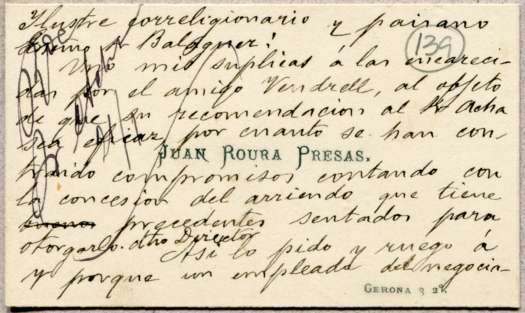 Ilustre correligionario y paisano
Exmo Sr Balaguer:
139
Uno mis suplicas á las encareci-
das por el amigo Vendrell, al objeto
de que su recomendacion al Sr Acha
sea eficaz por cuanto se han con-
JUAN ROURA PRESAS.
traido compromisos contando con
la concesion del arriendo que tiene
precedentes sentados para
otorgarlo dho Director
Asi lo pido y ruego á
y porque un empleado del negocia-
GERONA